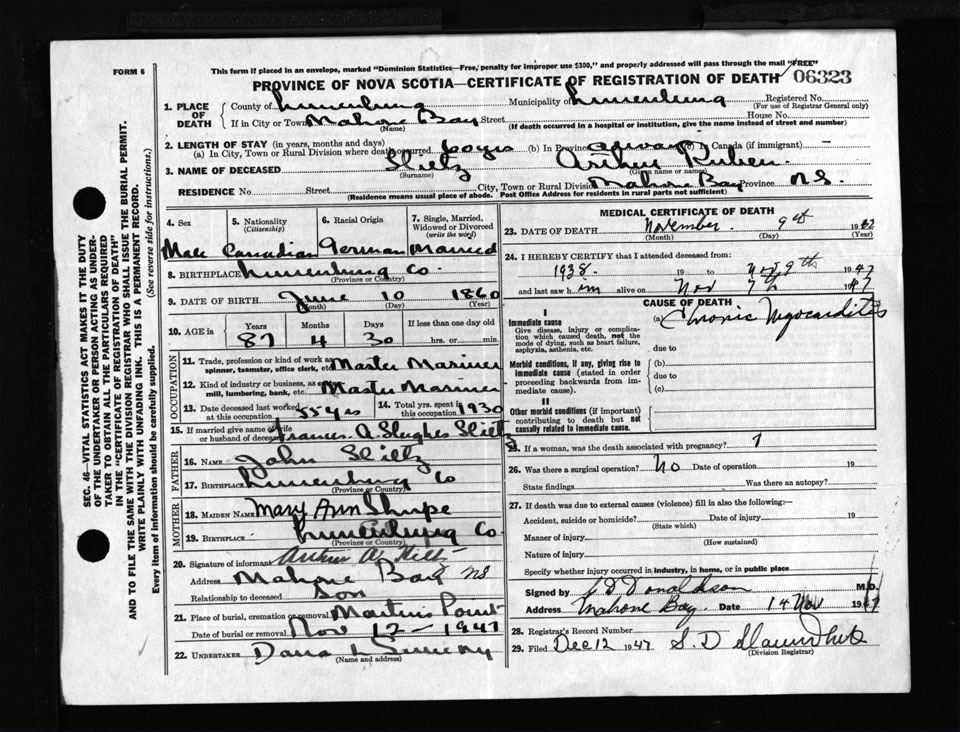 FORM 6
This form if placed in an envelope, marked "Dominion Statistics—Free, penalty for improper use $300," and properly addressed will pass through the mail "FREE"
PROVINCE OF NOVA SCOTIA—CERTIFICATE OF REGISTRATION OF DEATH 06323
SEC. 46—VITAL STATISTICS ACT MAKES IT THE DUTY
OF THE UNDERTAKER OR PERSON ACTING AS UNDER-
TAKER TO OBTAIN ALL THE PARTICULARS REQUIRED
IN THE "CERTIFICATE OF REGISTRATION OF DEATH"
AND TO FILE THE SAME WITH THE DIVISION REGISTRAR WHO SHALL ISSUE THE BURIAL PERMIT.
WRITE PLAINLY WITH UNFADING INK. THIS IS A PERMANENT RECORD.
Every item of information should be carefully supplied. (See reverse side for instructions.)
1. PLACE OF DEATH
County of Lunenburg Municipality of Lunenburg Registered No.
(For use of Registrar General only)
If in City or Town Mahone Bay Street House No.
(Name) (If death occurred in a hospital or institution, give the name instead of street and number)
2. LENGTH OF STAY (in years, months and days)
(a) In City, Town or Rural Division where death occurred 60 yrs (b) In Province always (c) Canada (if immigrant)
3. NAME OF DECEASED Arthur Ruben
(Surname) (Given name or names)
RESIDENCE No. Street City, Town or Rural Division Mahone Bay Province N.S.
(Residence means usual place of abode. Post Office Address for residents in rural parts not sufficient)
4. Sex
Male
5. Nationality
(Citizenship)
Canadian
6. Racial Origin
German
7. Single, Married, Widowed or Divorced
(write the word)
Married
8. BIRTHPLACE Lunenburg Co.
(Province or Country)
9. DATE OF BIRTH June 10 1860
(Month) (Day) (Year)
10. AGE in
Years Months Days If less than one day old
87 4 30 hrs. or min.
OCCUPATION
11. Trade, profession or kind of work as spinner, teamster, office clerk, etc. Master Mariner
12. Kind of industry or business, as mill, lumbering, bank, etc. Master Mariner
13. Date deceased last worked at this occupation 55 yrs
14. Total yrs. spent in this occupation 1930
15. If married give name of wife or husband of deceased Frances A.
FATHER
16. Name John
17. Birthplace Lunenburg Co
(Province or Country)
MOTHER
18. Maiden Name Mary Ann
19. Birthplace Lunenburg Co.
(Province or Country)
20. Signature of informant Arthur
Address Mahone Bay NS
Relationship to deceased Son
21. Place of burial, cremation or removal Martins Point
Date of burial or removal Nov 12 — 1947
22. UNDERTAKER Dana L
(Name and address)
MEDICAL CERTIFICATE OF DEATH
23. DATE OF DEATH November 9th 19
(Month) (Day) (Year)
24. I HEREBY CERTIFY that I attended deceased from:
1938 19 to Nov 9th 1947
and last saw him alive on Nov 1947
CAUSE OF DEATH
I
Immediate cause
Give disease, injury or complication which caused death, not the mode of dying, such as heart failure, asphyxia, asthenia, etc.
(a) Chronic Myocarditis
due to
Morbid conditions, if any, giving rise to immediate cause (stated in order proceeding backwards from immediate cause).
(b)
due to
(c)
II
Other morbid conditions (if important) contributing to death but not causally related to immediate cause.
25. If a woman, was the death associated with pregnancy?
26. Was there a surgical operation? No Date of operation 19
State findings Was there an autopsy?
27. If death was due to external causes (violence) fill in also the following:—
Accident, suicide or homicide? Date of injury 19
(State which)
Manner of injury
(How sustained)
Nature of injury
Specify whether injury occurred in industry, in home, or in public place
Signed by Donaldson M.D.
Address Mahone Bay. Date 14 Nov 1947
28. Registrar's Record Number
29. Filed Dec 12 1947 S. D
(Division Registrar)